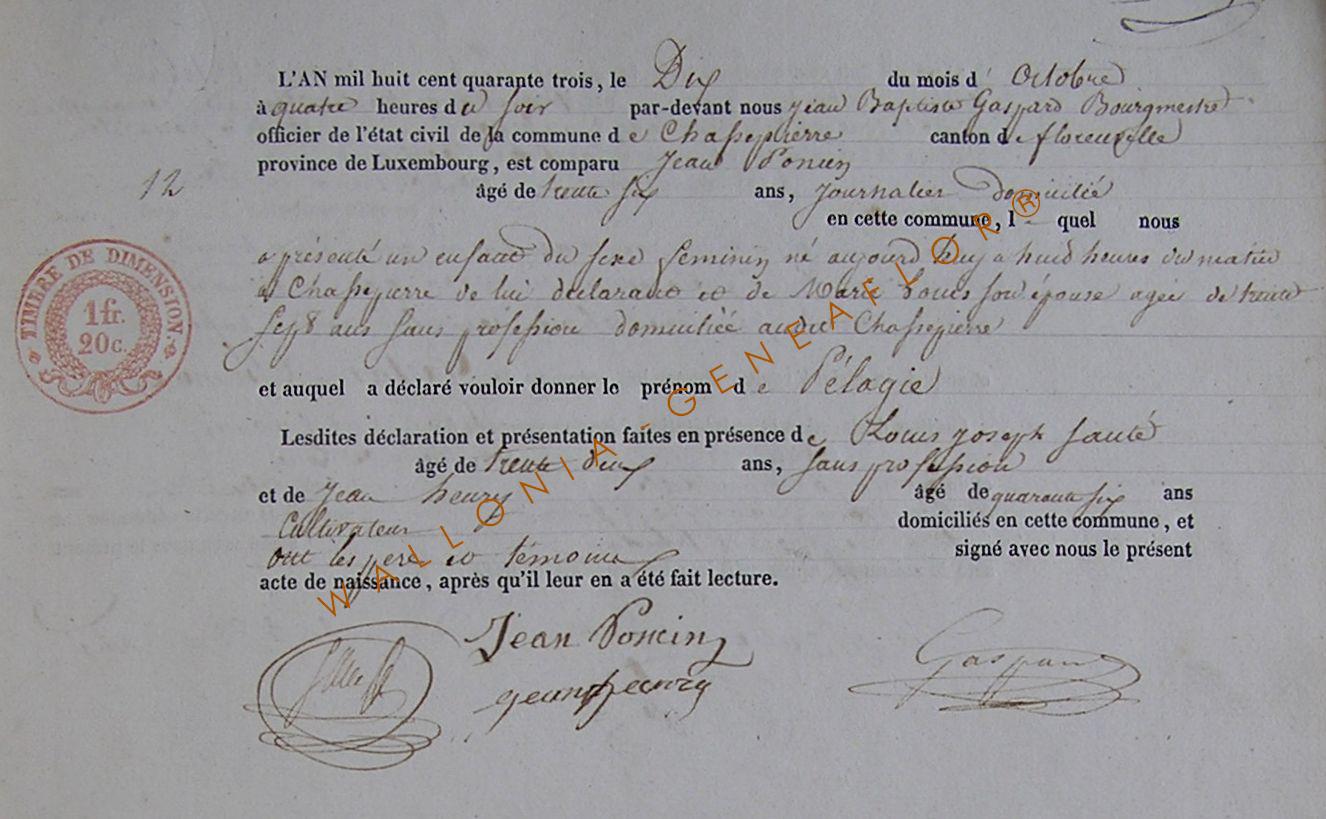 L'AN mil huit cent quarante trois, le Dix du mois d' Octobre
à quatre heures du soir par-devant nous Jean Baptiste Gaspard Bourgmestre
officier de l'état civil de la commune de Chassepierre canton de florenville
province de Luxembourg, est comparu Jean Poncin
12
âgé de trente six ans, Journalier domicilié
en cette commune, lequel nous
a présenté un enfant du sexe feminin né aujourd huy a huit heures du matin
à Chassepierre de lui déclarant et de Marie son épouse agée de trente
sept ans sans profession domiciliée audit Chassepierre
TIMBRE DE DIMENSION
1 fr.
20 c.
et auquel a déclaré vouloir donner le prénom de Pélagie
Lesdites déclaration et présentation faites en présence de Louis Joseph
âgé de trente deux ans, sans profession
et de Jean henry âgé de quarante six ans
Cultivateur domiciliés en cette commune, et
ont les pere et témoins signé avec nous le présent
acte de naissance, après qu'il leur en a été fait lecture.
WALLONIA-GENEAFLOR®
Jean Poncin
Gaspard